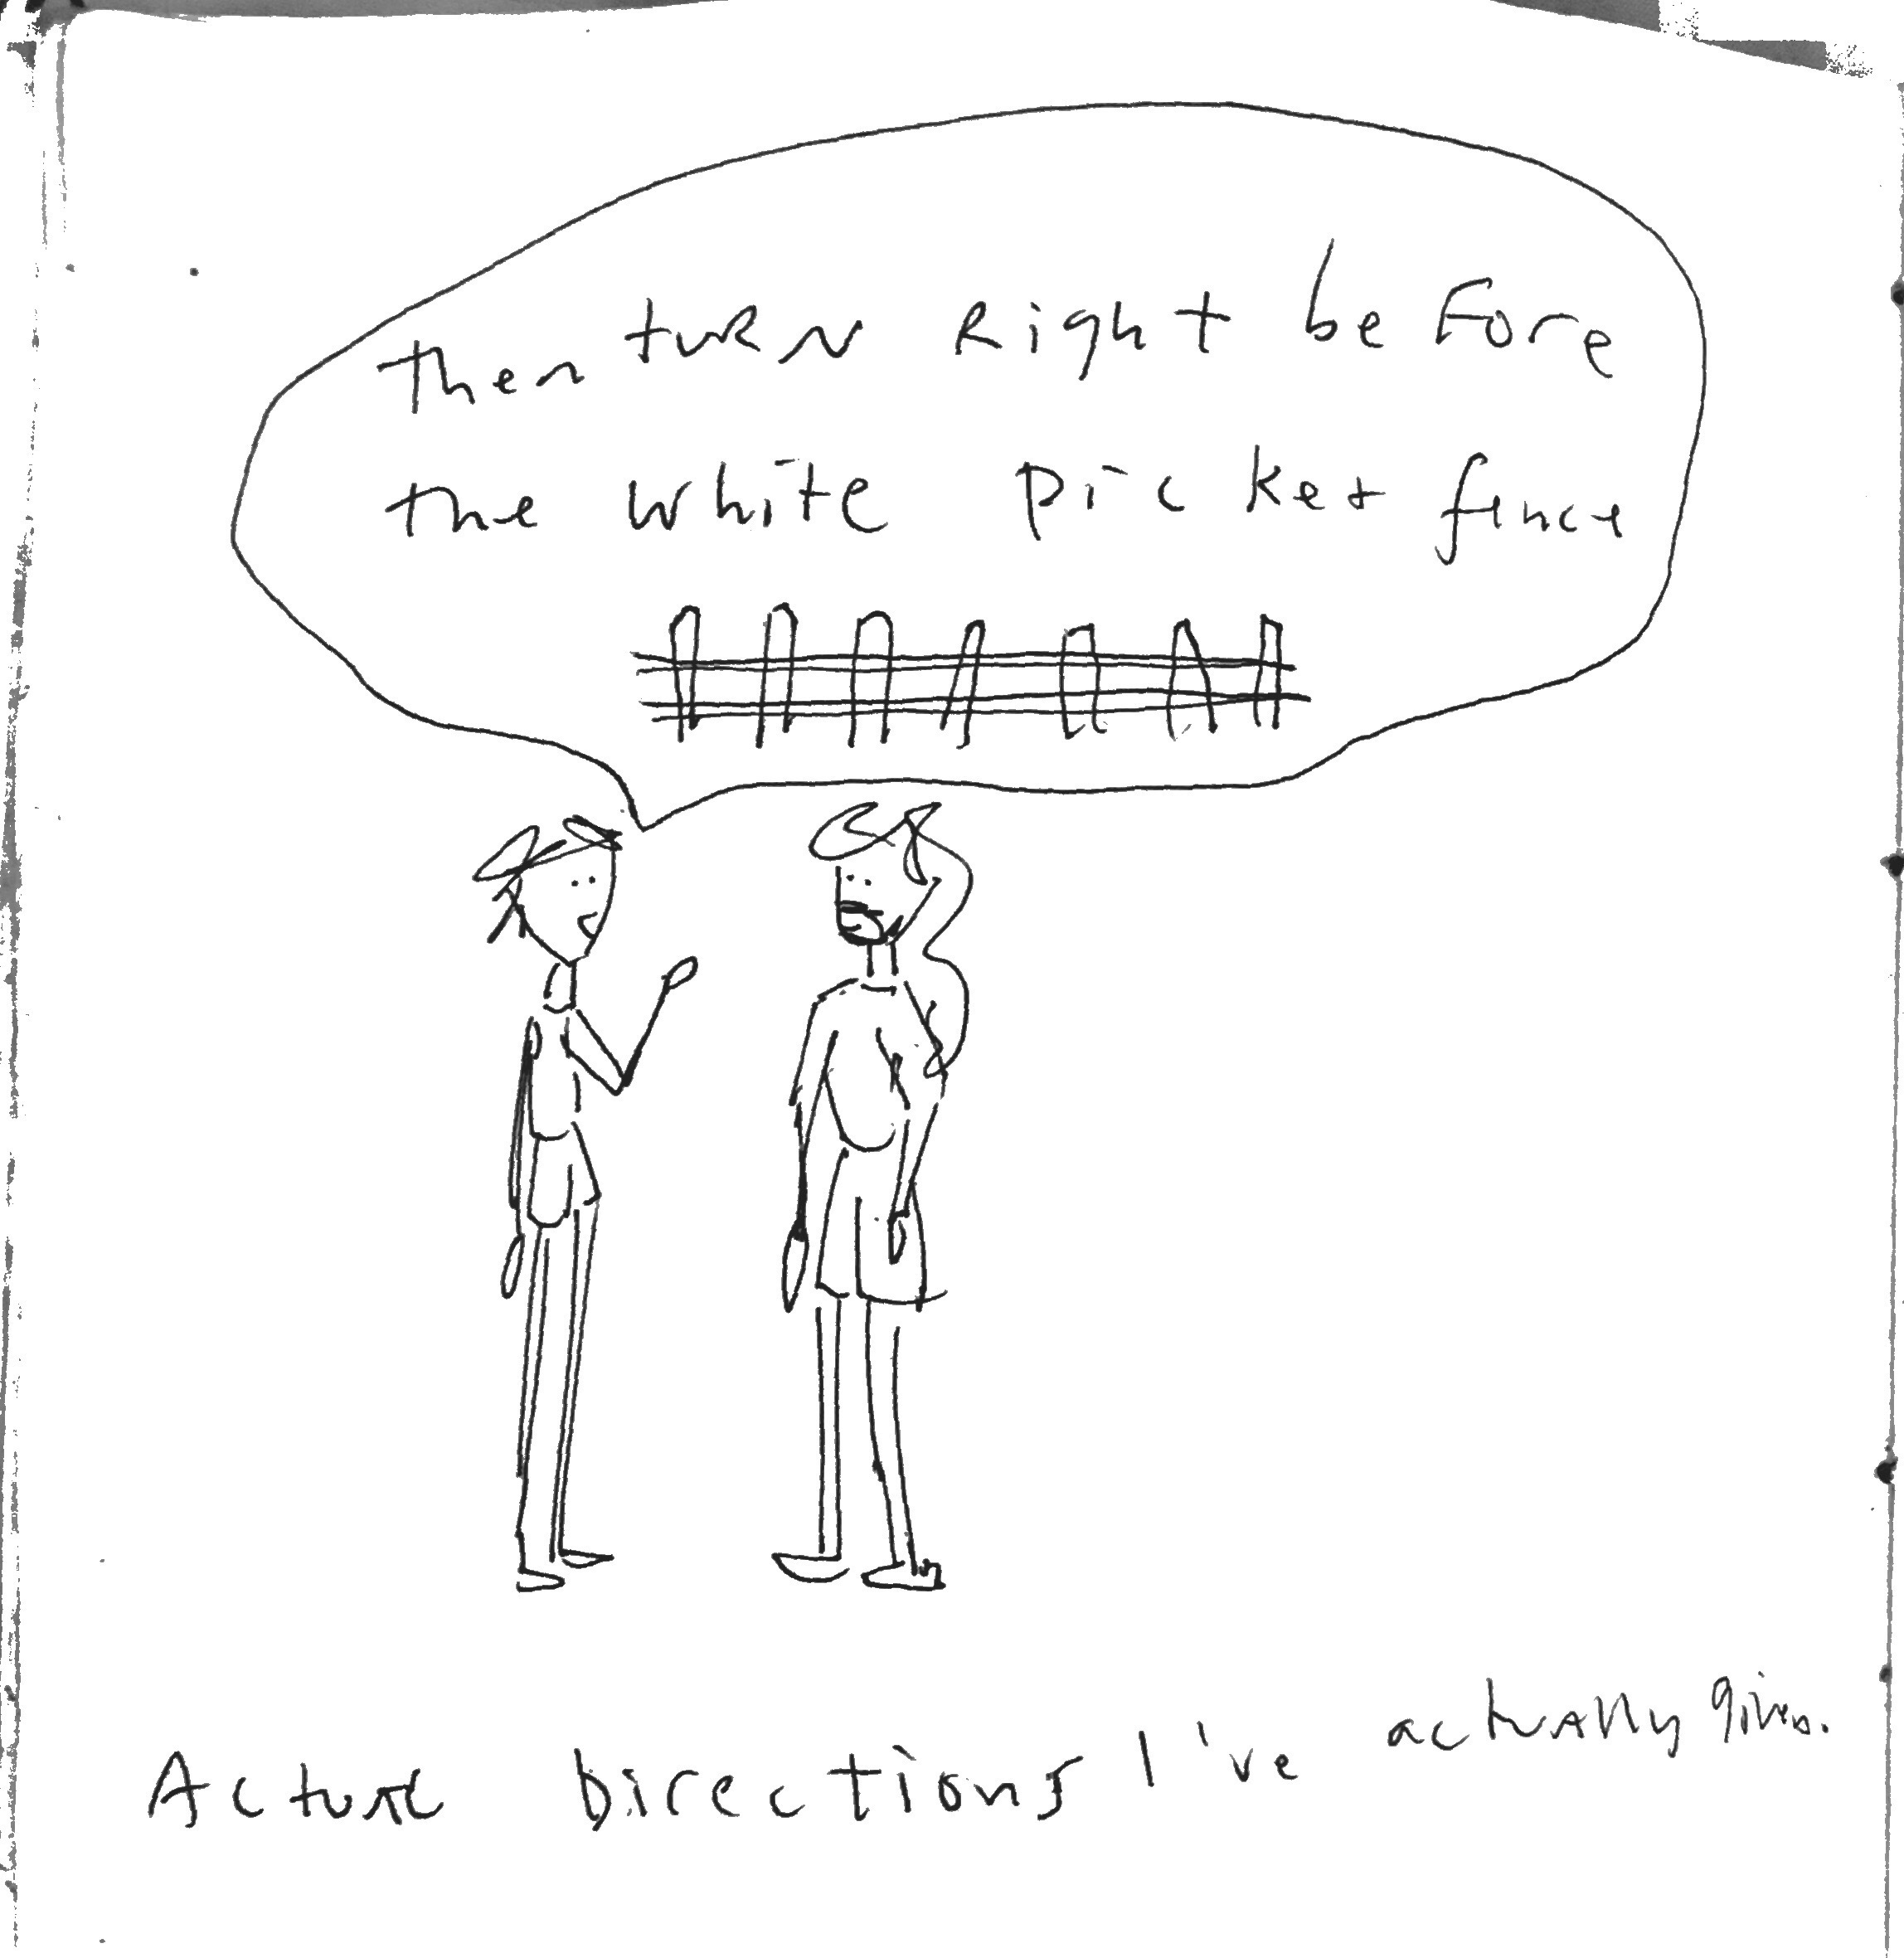 Then turn Right before
the white picket fence
Actual Directions I've actually given.